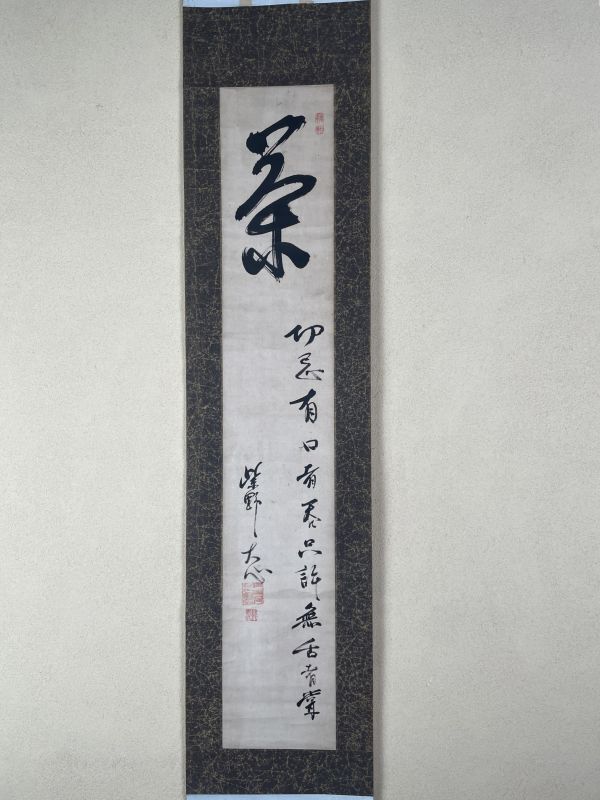 茶
切忌有口者呑只許無舌者嘗
紫野大心